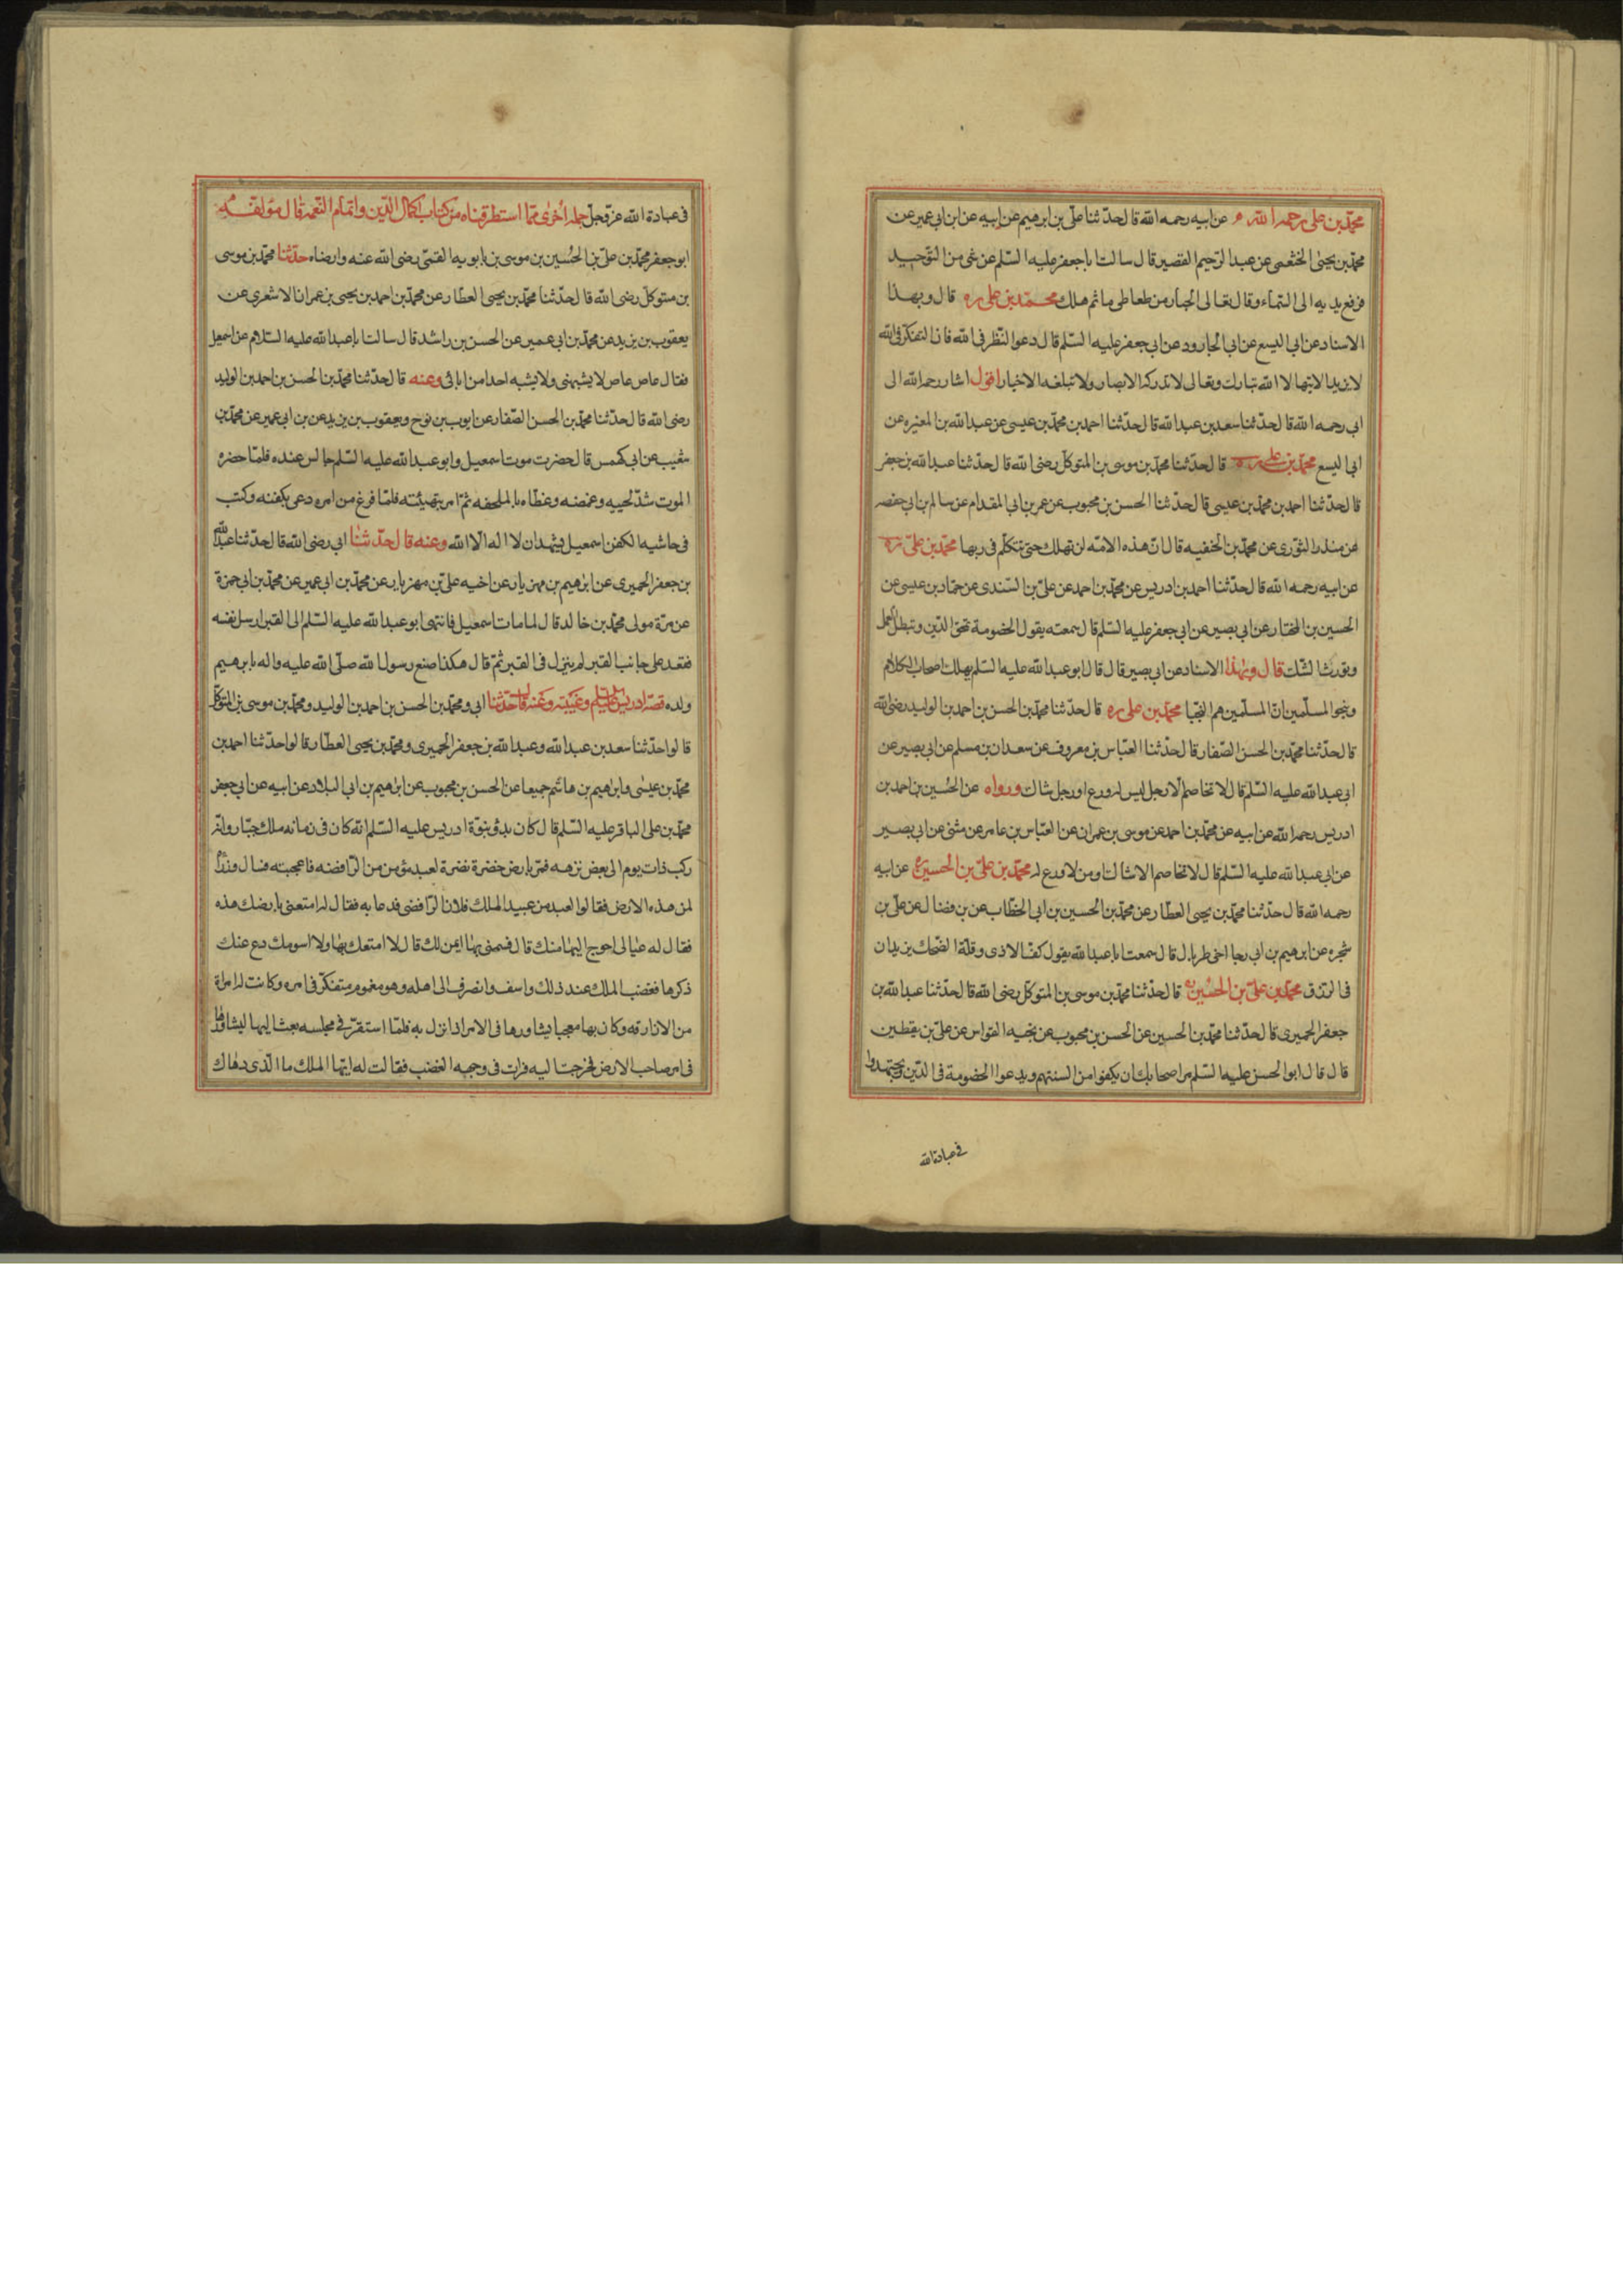 محمد بن علی رحمه الله عن ابیه رحمه الله قال حدثنا علی بن ابرهیم عن ابیه عن ابن ابی عمیر عن
محمد بن یحیی الخثعمی عن عبد الرحیم القصیر قال سالت ابا جعفر علیه السلم عن شی من التوحید
فرفع یدیه الی السماء وقال تعالی الجبار من تعاطی ما ثم هلك محمد بن علی ره قال وبهذا
الاسناد عن ابی الیسع عن ابی الجارود عن ابی جعفر علیه السلم قال دعوا النظر فی الله فان التفکر فی الله
لا یزید الا تیها لا الله تبارك وتعالی لا تدرکه الابصار ولا تبلغه الاخبار اقول اشار رحمه الله الی
ابی رحمه الله قال حدثنا سعد بن عبد الله قال حدثنا احمد بن محمد بن عیسی عن عبد الله بن المغیره عن
ابی الیسع محمد بن علی ره قال حدثنا محمد بن موسی بن المتوکل رضی الله قال حدثنا عبد الله بن جعفر
قال حدثنا احمد بن محمد بن عیسی قال حدثنا الحسن بن محبوب عن عمر بن ابی المقدام عن سالم بن ابی حفصه
عن منذر الثوری عن محمد بن الحنفیه قال ان هذه الامه لن تهلك حتی تتکلم فی ربها محمد بن علی ره
عن ابیه رحمه الله قال حدثنا احمد بن ادریس عن محمد بن احمد عن علی بن السندی عن حماد بن عیسی عن
الحسین بن المختار عن ابی بصیر عن ابی جعفر علیه السلم قال سمعته یقول الخصومة تمحق الدین وتبطل العمل
وتورث الشك قال وبهذا الاسناد عن ابی بصیر قال قال ابو عبد الله علیه السلم یهلك اصحاب الکلام
وینجوا المسلمین ان المسلمین هم النجبا محمد بن علی ره قال حدثنا محمد بن الحسن بن احمد بن الولید رضی الله
قال حدثنا محمد بن الحسن الصفار قال حدثنا العباس بن معروف عن سعدان بن مسلم عن ابی بصیر عن
ابی عبد الله علیه السلم قال لا تخاصم الا رجل لیس له ورع او رجل شاك ورواه عن الحسین بن احمد بن
ادریس رحمه الله عن ابیه عن محمد بن احمد عن موسی بن عمران عن العباس بن عامر عن مثنی عن ابی بصیر
عن ابی عبد الله علیه السلم قال لا تخاصم الا شاك او من لا ورع له محمد بن علی بن الحسین ره عن ابیه
رحمه الله قال حدثنا محمد بن یحیی العطار عن محمد بن الحسین بن ابی الخطاب عن بن فضال عن علی بن
شجره عن ابرهیم بن ابی رجا اخی طربال قال سمعت ابا عبد الله یقول کف الاذی وقلة الضحك یزیدان
فی الرزق محمد بن علی بن الحسین ره قال حدثنا محمد بن موسی بن المتوکل رضی الله قال حدثنا عبد الله بن
جعفر الحمیری قال حدثنا محمد بن الحسین عن الحسن بن محبوب عن نجیه القواس عن علی بن یقطین
قال قال ابو الحسن علیه السلم مر اصحابك ان یکفوا من السنتهم ویدعوا الخصومة فی الدین ویجتهدوا
فی عبادة الله
فی عبادة الله عز وجل جمله اخری مما استطرقناه من کتاب اکمال الدین واتمام النعمه قال مؤلفه
ابو جعفر محمد بن علی بن الحسین بن موسی بن بابویه القمی رضی الله عنه وارضاه حدثنا محمد بن موسی
بن متوکل رضی الله قال حدثنا محمد بن یحیی العطار عن محمد بن احمد بن یحیی بن عمران الاشعری عن
یعقوب بن یزید عن محمد بن ابی عمیر عن الحسن بن راشد قال سالت ابا عبد الله علیه السلام عن اسمعیل
فقال عاص عاص لا یشبهنی ولا یشبه احدا من ابائی وعنه قال حدثنا محمد بن الحسن بن احمد بن الولید
رضی الله قال حدثنا محمد بن الحسن الصفار عن ایوب بن نوح ویعقوب بن یزید عن بن ابی عمیر عن محمد بن
شعیب عن ابی کهمس قال حضرت موت اسمعیل وابو عبد الله علیه السلم جالس عنده فلما حضره
الموت شد لحییه وغمضه وغطاه بالملحفه ثم امر بتهیئته فلما فرغ من امره دعی بکفنه وکتب
فی حاشیه الکفن اسمعیل یشهد ان لا اله الا الله وعنه قال حدثنا ابی رضی الله قال حدثنا عبد الله
بن جعفر الحمیری عن ابرهیم بن مهزیار عن اخیه علی بن مهزیار عن محمد بن ابی عمیر عن محمد بن ابی حمزة
عن مرة مولی محمد بن خالد قال لما مات اسمعیل فانتهی ابو عبد الله علیه السلم الی القبر ارسل نفسه
فقعد علی جانب القبر لم ینزل فی القبر ثم قال هکذا صنع رسول الله صلی الله علیه واله بابرهیم
ولده قصة ادریس علیه السلم وغیبته وعنه قال حدثنا ابی ومحمد بن الحسن بن احمد بن الولید ومحمد بن موسی بن المتوکل
قالوا حدثنا سعد بن عبد الله وعبد الله بن جعفر الحمیری ومحمد بن یحیی العطار قالوا حدثنا احمد بن
محمد بن عیسی وابرهیم بن هاشم جمیعا عن الحسن بن محبوب عن ابرهیم بن ابی البلاد عن ابیه عن ابی جعفر
محمد بن علی الباقر علیه السلم قال کان بدؤ نبوة ادریس علیه السلم انه کان فی زمانه ملك جبار وانه
رکب ذات یوم الی بعض نزهه فمر بارض خضرة نضرة لعبد مؤمن من الرافضه فاعجبته فسال وزرائه
لمن هذه الارض فقالوا لعبد من عبید الملك فلان الرافضی فدعا به فقال له امتعنی بارضك هذه
فقال له عیالی احوج الیها منك قال فسمنی بها اثمن لك قال لا امتعك بها ولا اسومك دع عنك
ذکرها فغضب الملك عند ذلك واسف وانصرف الی اهله وهو مغموم متفکر فی امره وکانت له امراة
من الازارقه وکان بها معجبا یشاورها فی الامر اذا نزل به فلما استقر فی مجلسه بعث الیها لیشاورها
فی امر صاحب الارض فخرجت الیه فرات فی وجهه الغضب فقالت له ایها الملك ما الذی دهاك